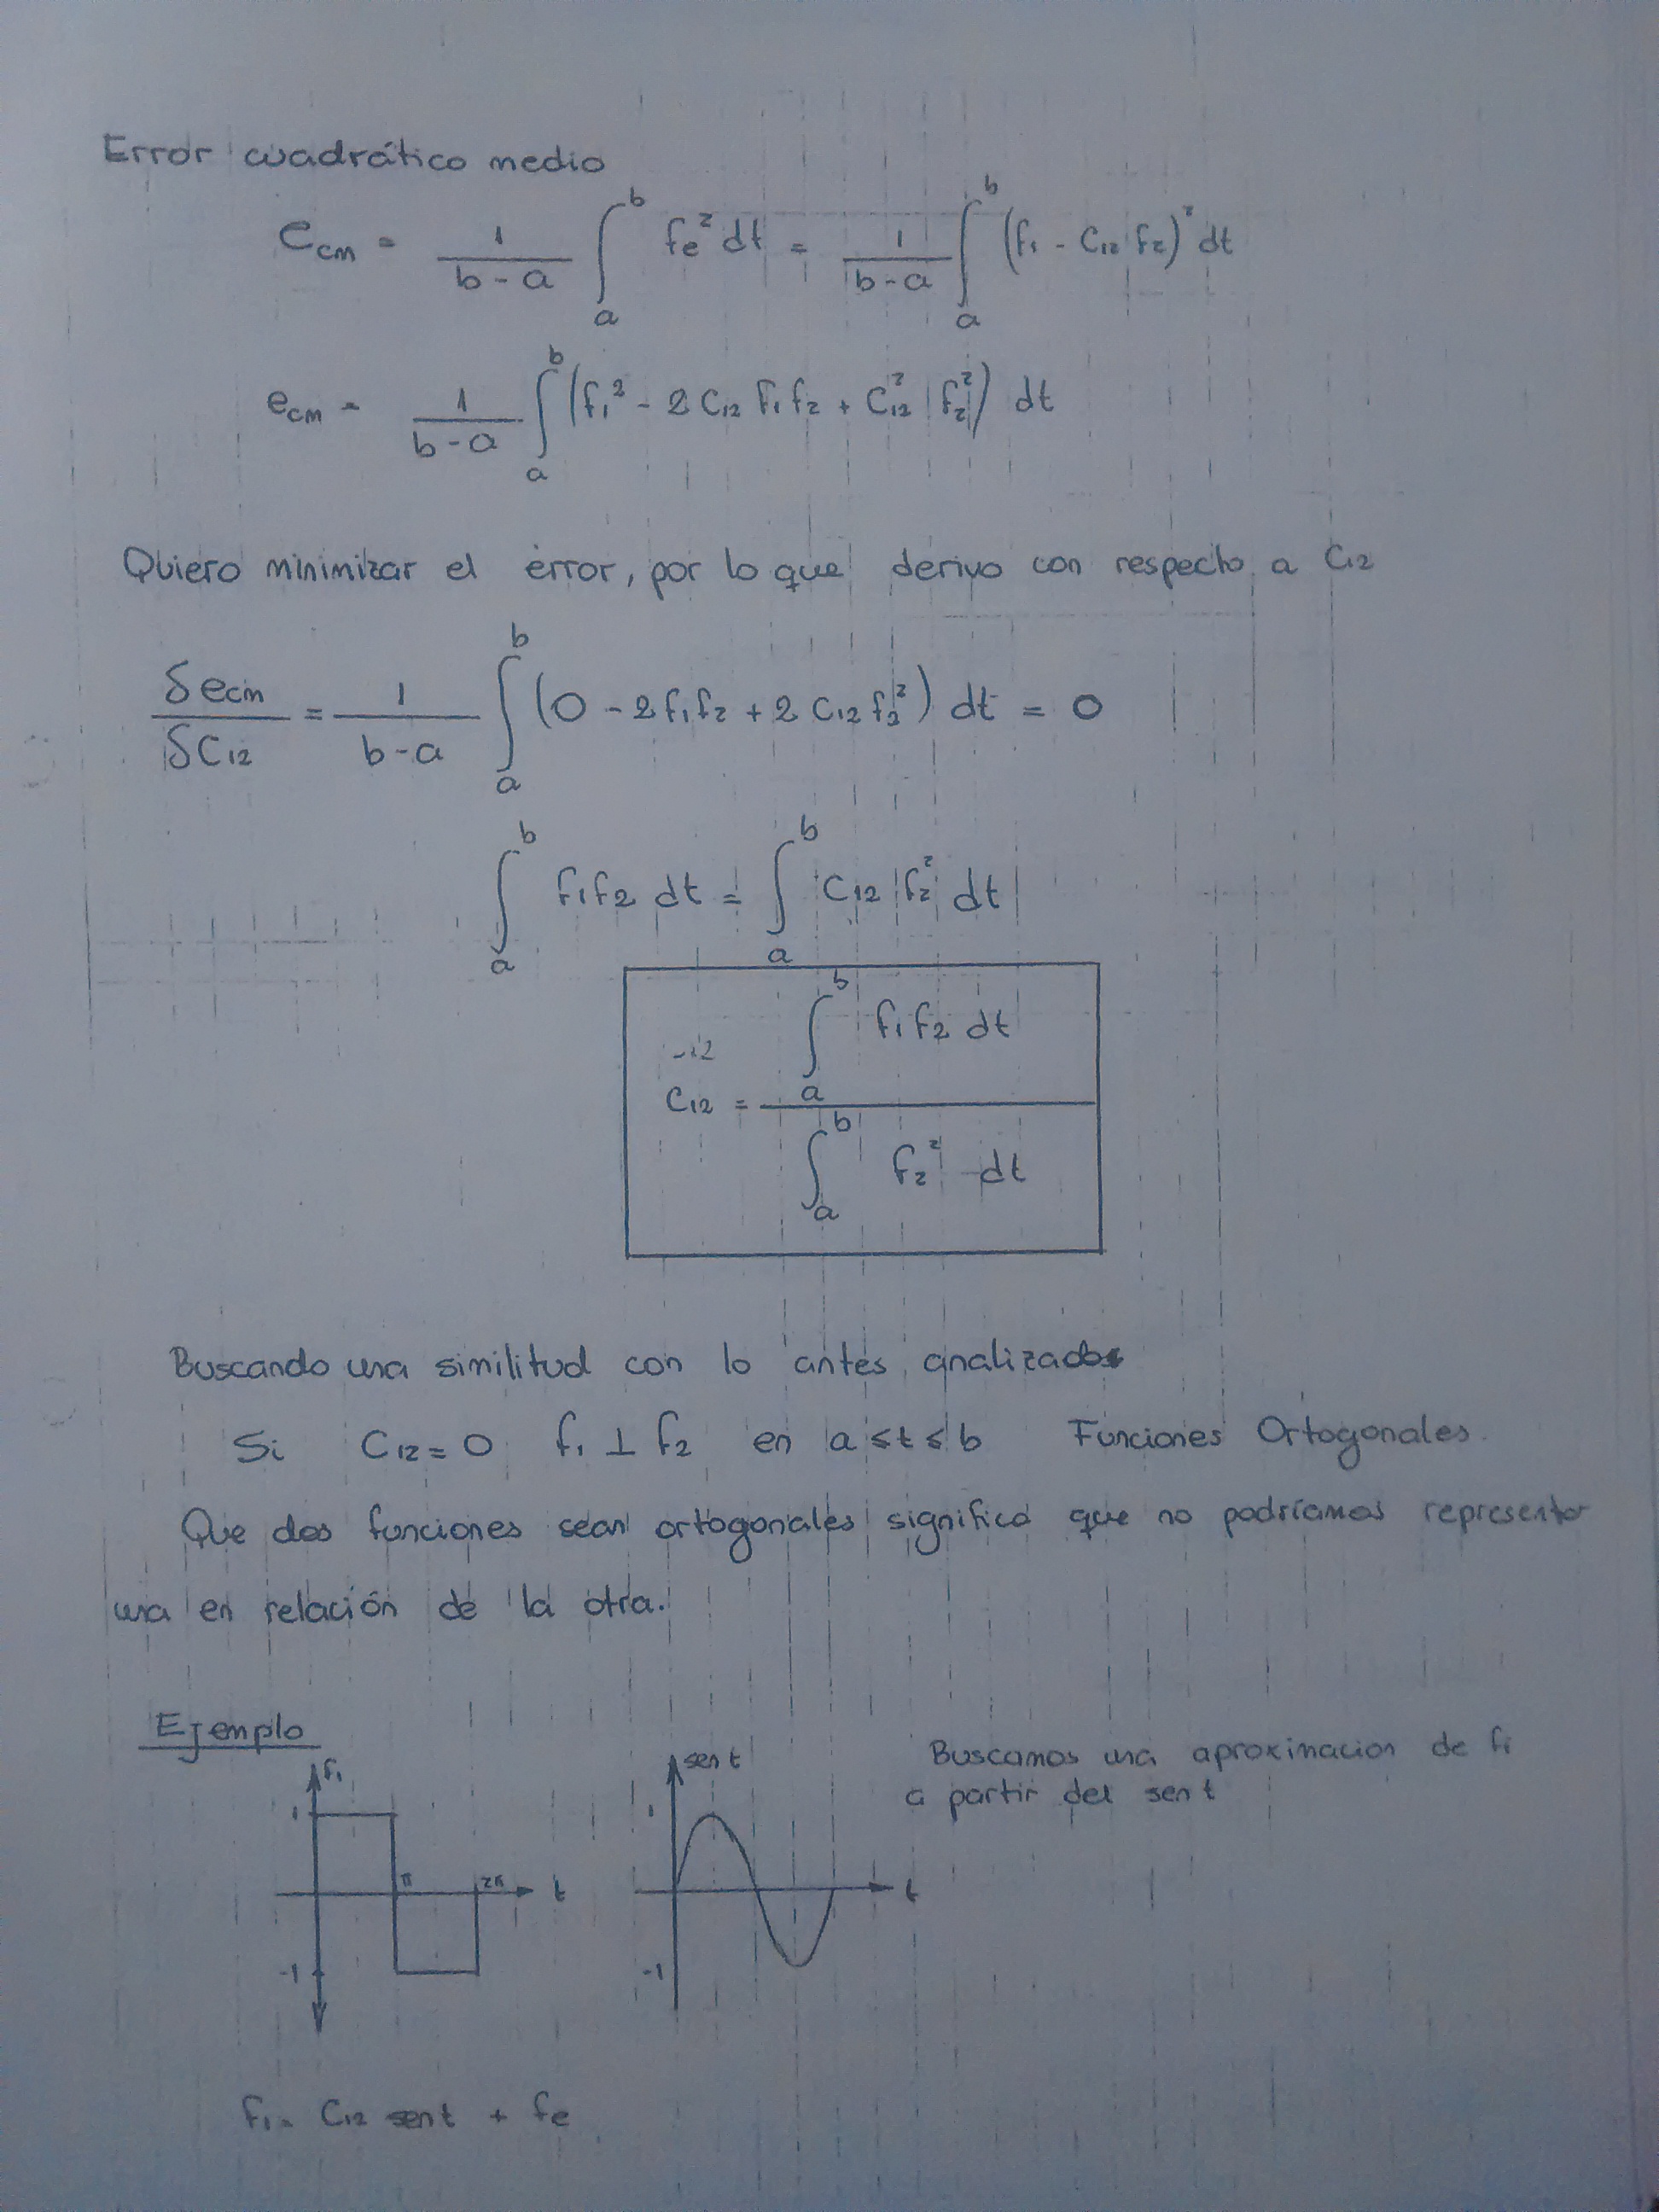 Error cuadrático medio
e_cm = 1/(b-a) ∫_a^b fe² dt = 1/(b-a) ∫_a^b (f₁ - C₁₂ f₂)² dt
e_cm = 1/(b-a) ∫_a^b (f₁² - 2 C₁₂ f₁ f₂ + C₁₂² f₂²) dt
Quiero minimizar el error, por lo que derivo con respecto a C₁₂
δe_cm/δC₁₂ = 1/(b-a) ∫_a^b (0 - 2 f₁ f₂ + 2 C₁₂ f₂²) dt = 0
∫_a^b f₁ f₂ dt = ∫_a^b C₁₂ f₂² dt
C₁₂ = ∫_a^b f₁ f₂ dt / ∫_a^b f₂² dt
Buscando una similitud con lo antes analizado
Si C₁₂ = 0 f₁ ⊥ f₂ en a ≤ t ≤ b Funciones Ortogonales.
Que dos funciones sean ortogonales significa que no podríamos representar
una en relación de la otra.
Ejemplo
f₁
1
π
2π
t
-1
sen t
1
t
-1
Buscamos una aproximacion de f₁
a partir del sen t
f₁ = C₁₂ sen t + fe